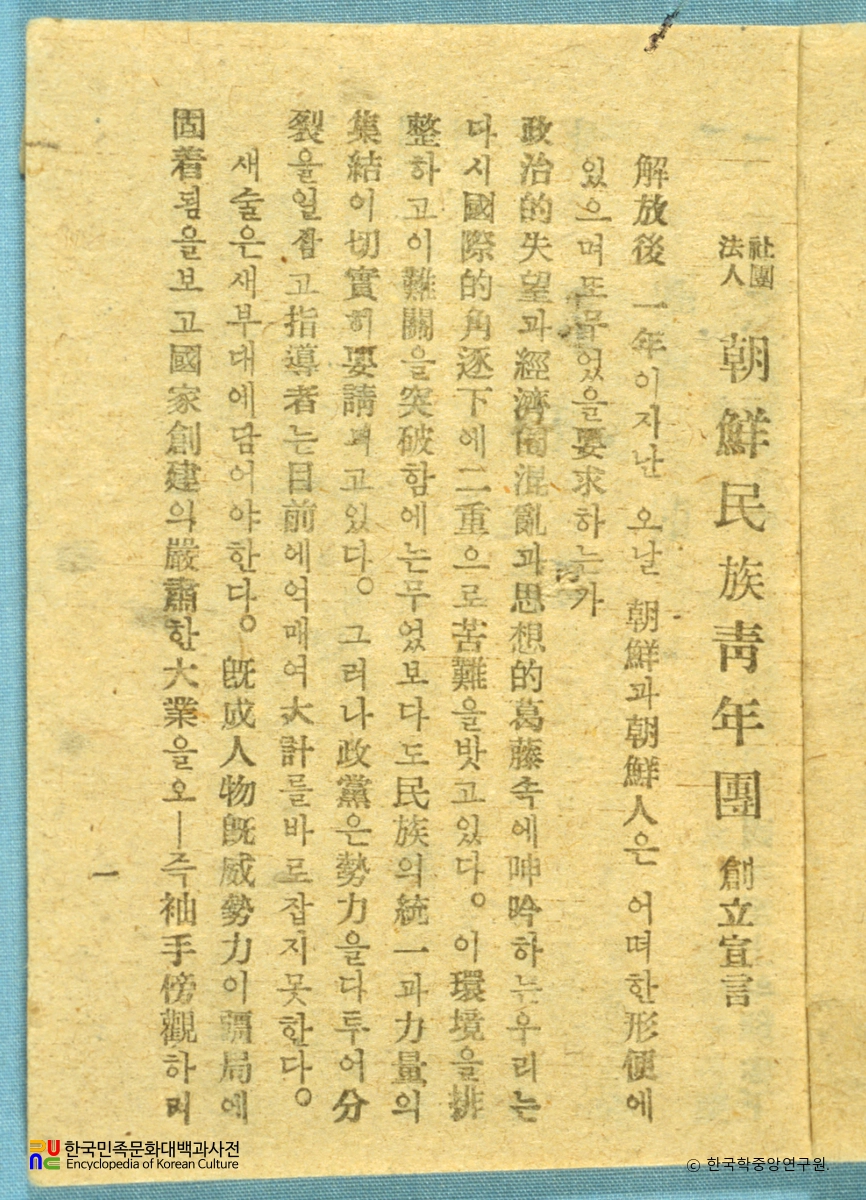 社團法人 朝鮮民族靑年團 創立宣言
解放後 一年이지난 오날 朝鮮과朝鮮人은 어떠한形便에
있으며또무었을要求하는가
政治的失望과經濟的混亂과思想的葛藤속에呻吟하는우리는
다시國際的角逐下에二重으로苦難을밧고있다。이環境을排
整하고이難關을突破함에는무었보다도民族의統一과力量의
集結이切實히要請되고있다。그러나政黨은勢力을다투어分
裂을일삼고指導者는目前에억매여大計를바로잡지못한다。
새술은새부대에담어야한다。旣成人物旣成勢力이彊局에
固着됨을보고國家創建의嚴肅한大業을오ー즉袖手傍觀하려
一
한국민족문화대백과사전
Encyclopedia of Korean Culture
© 한국학중앙연구원.